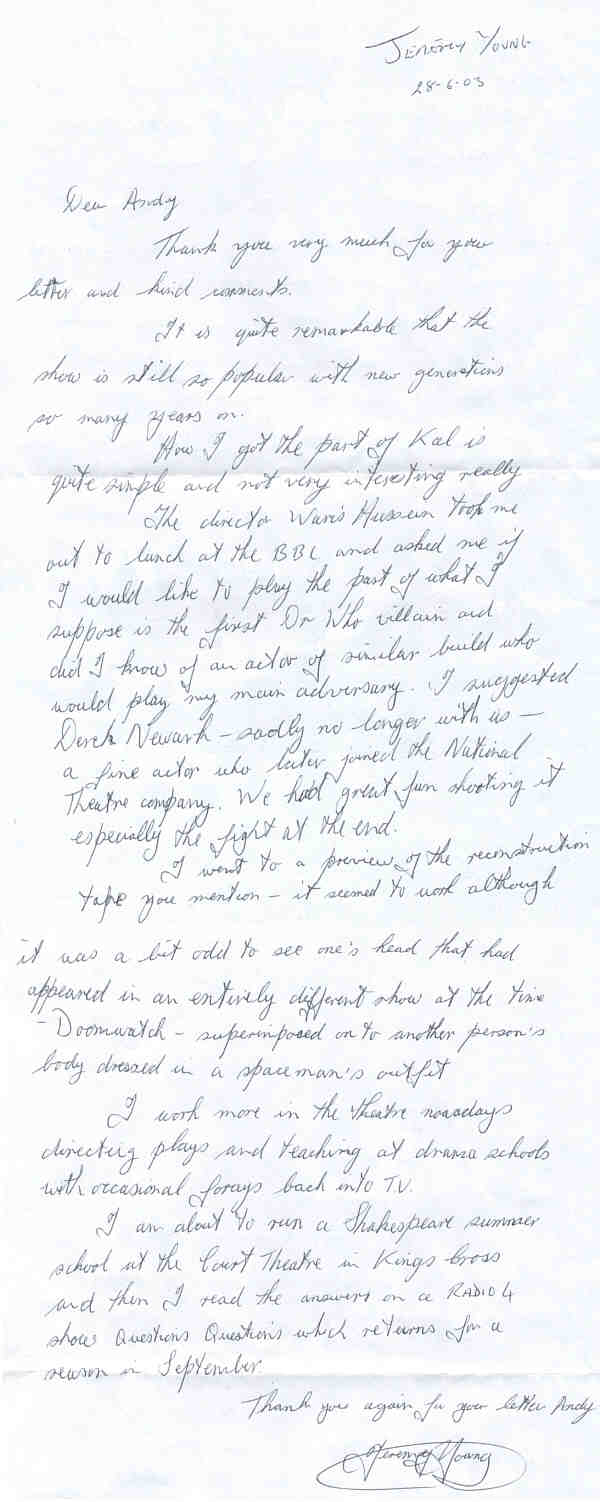 Jeremy Young
28-6-03
Dear Andy
Thank you very much for your
letter and kind comments.
It is quite remarkable that the
show is still so popular with new generations
so many years on.
How I got the part of Kal is
quite simple and not very interesting really
The director Waris Hussein took me
out to lunch at the BBC and asked me if
I would like to play the part of what I
suppose is the first Dr Who villain and
did I know of an actor of similar build who
would play my main adversary. I suggested
Derek Newark - sadly no longer with us -
a fine actor who later joined the National
Theatre company. We had great fun shooting it
especially the fight at the end.
I went to a preview of the reconstruction
tape you mention - it seemed to work although
it was a bit odd to see one's head that had
appeared in an entirely different show at the time
- Doomwatch - superimposed on to another person's
body dressed in a spaceman's outfit
I work more in the theatre nowadays
directing plays and teaching at drama schools
with occasional forays back into TV.
I am about to run a Shakespeare summer
school at the Court Theatre in Kings Cross
and then I read the answers on a RADIO 4
show Questions Questions which returns for a
season in September.
Thank you again for your letter Andy
Jeremy Young